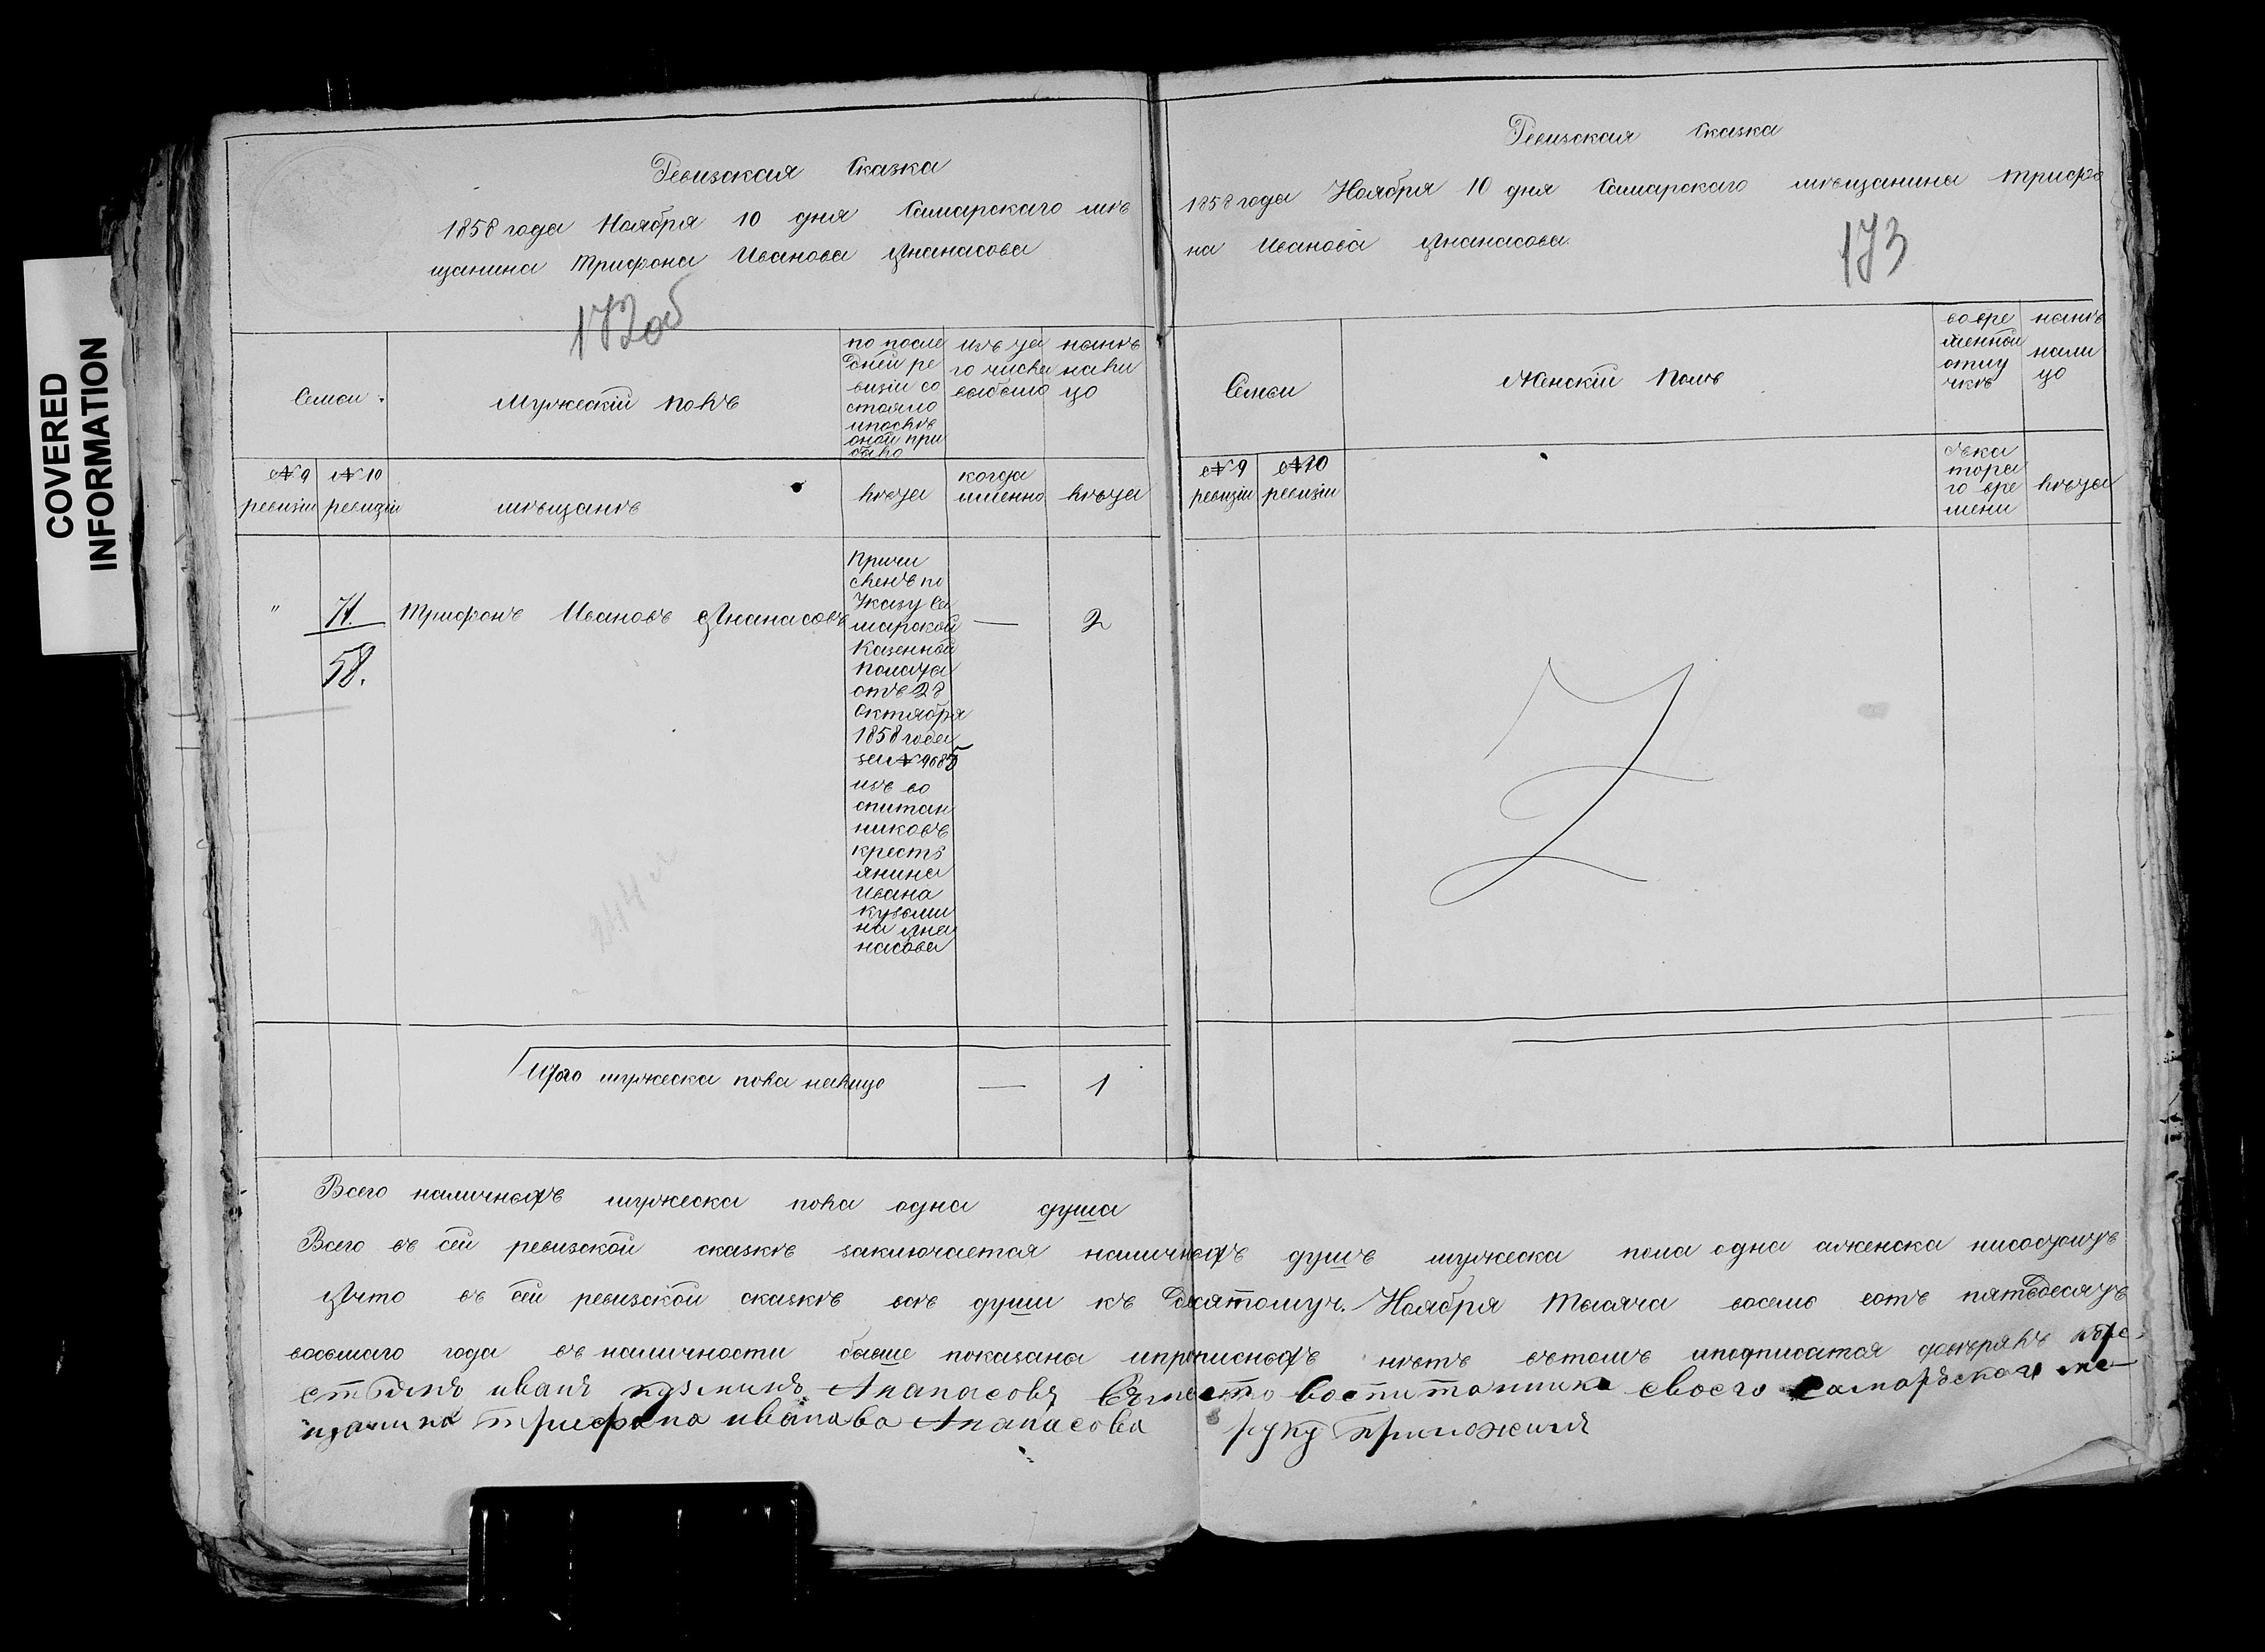 COVERED
INFORMATION
Ревизская Сказка
1858 года Ноября 10 дня Самарскаго мѣ
щанина Трифона Иванова Ананасова
172 об
Семьи
Мужескій полъ
по после
дней ре
визіи со
стояло
и после
оной при
было
изъ та
го числа
выбыло
нынѣ
на ли
цо
№ 9
ревизіи
№ 10
ревизіи
мѣщанѣ
лѣта
когда
именно
лѣта
"
71.
58.
Трифонъ Ивановъ Ананасовъ
Причи
сленъ по
Указу Са
марской
Казенной
Полата
отъ 28
Октября
1858 года
за № 9085
изъ во
спитан
никовъ
кресть
янина
Ивана
Кузьми
на Ана
насова
—
2
Итого мужеска пола налицо — 1
Ревизская Сказка
1858 года Ноября 10 дня Самарскаго мѣщанина Трифо
на Иванова Ананасова
173
Семьи
Женскій Полъ
во вре
менной
отлу
чкѣ
нынѣ
нали
цо
№ 9
ревизіи
№ 10
ревизіи
съ ка
тора
го вре
мени
лѣта
Всего наличныхъ мужеска пола одна душа
Всего въ сей ревизской сказкѣ заключается наличныхъ душъ мужеска пола одна а женска
Что въ сей ревизской сказкѣ всѣ души къ Десятому ч. Ноября Тысяча восемь сотъ пятьдесятъ
восьмаго года въ наличности бывше показаны и прописныхъ нѣтъ въ томъ и подписатся довѣрялъ кре
стьянъ иванъ кузминъ Ананасовъ вместо воспитанника своего самарскаго ме
щанина трифона иванова Ананасова руку приложилъ